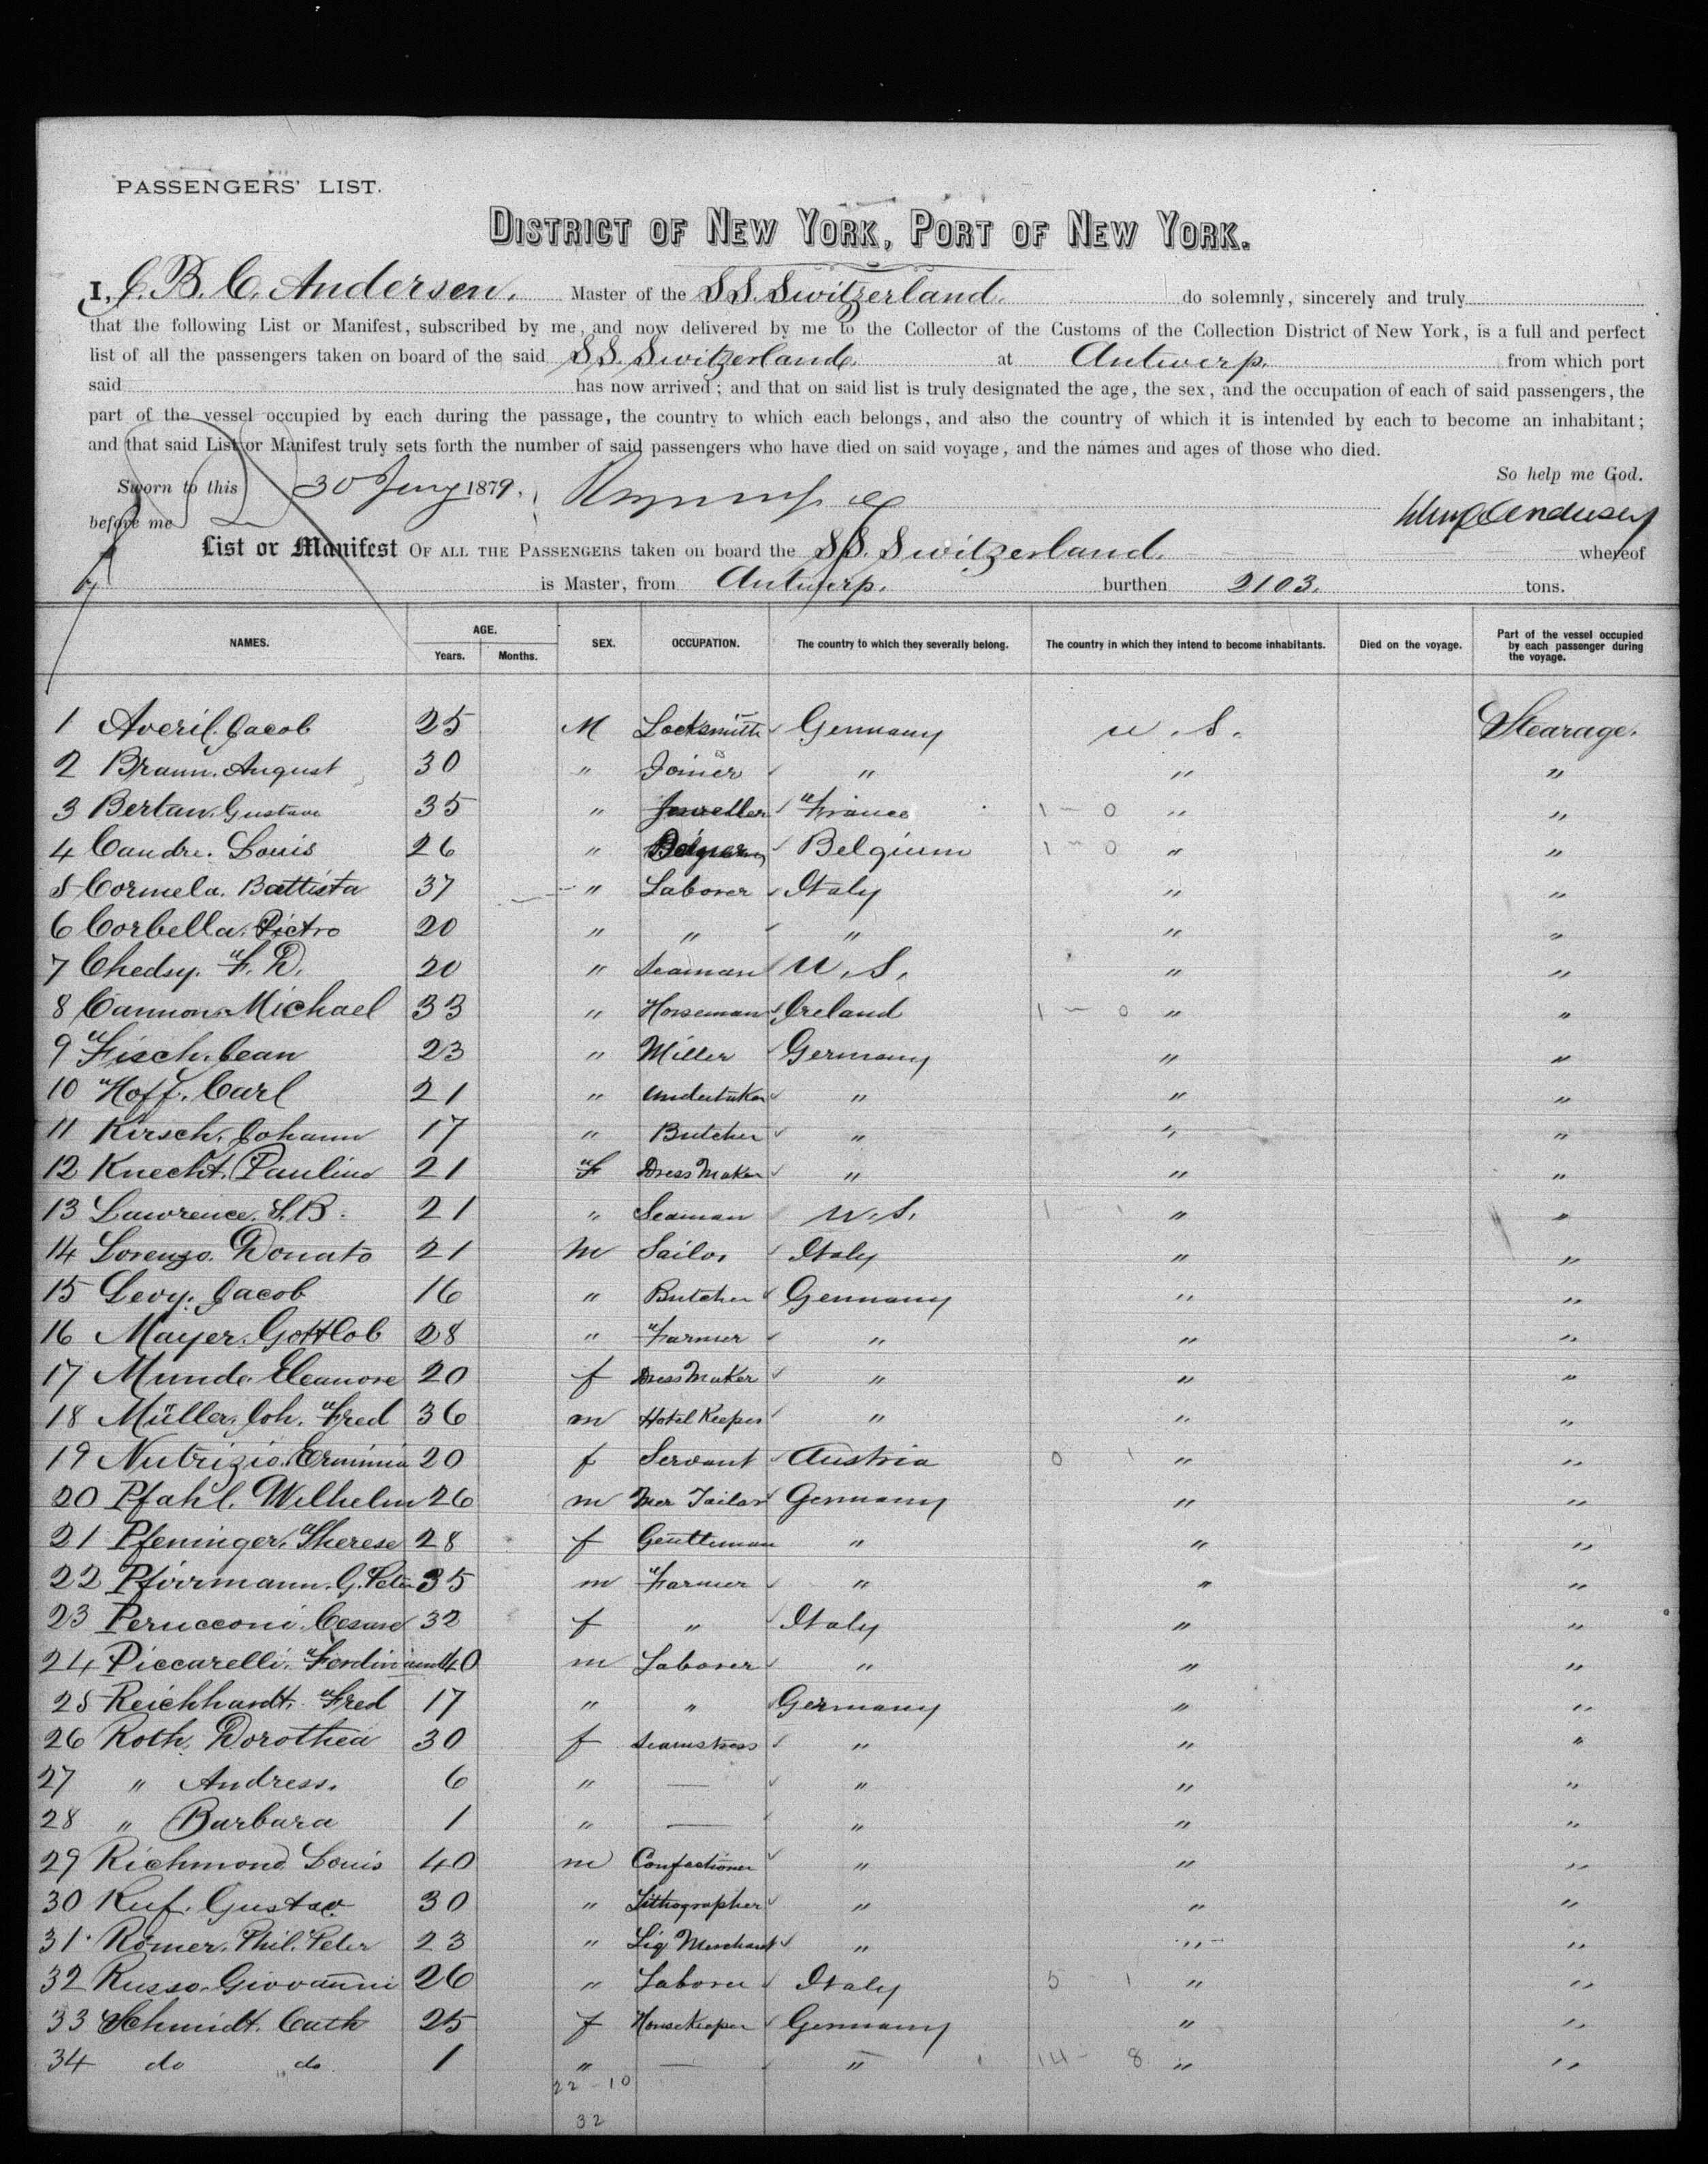 PASSENGERS' LIST.
DISTRICT OF NEW YORK, PORT OF NEW YORK.
I, J. B. C. Andersen. Master of the S.S. Switzerland. do solemnly, sincerely and truly
that the following List or Manifest, subscribed by me, and now delivered by me to the Collector of the Customs of the Collection District of New York, is a full and perfect
list of all the passengers taken on board of the said S.S. Switzerland. at Antwerp. from which port
said has now arrived; and that on said list is truly designated the age, the sex, and the occupation of each of said passengers, the
part of the vessel occupied by each during the passage, the country to which each belongs, and also the country of which it is intended by each to become an inhabitant;
and that said List or Manifest truly sets forth the number of said passengers who have died on said voyage, and the names and ages of those who died.
So help me God.
Sworn to this 30 Jany 1879,
before me Andersen
List or Manifest OF ALL THE PASSENGERS taken on board the S.S. Switzerland. whereof
is Master, from Antwerp. burthen 2103. tons.
NAMES. AGE. Years. Months. SEX. OCCUPATION. The country to which they severally belong. The country in which they intend to become inhabitants. Died on the voyage. Part of the vessel occupied by each passenger during the voyage.
1 Averil. Jacob 25 M Locksmith Germany U. S. Stearage.
2 Braun. August 30 " Joiner " " "
3 Bertan. Gustave 35 " Jeweller France 1 - 0 " "
4 Candre. Louis 26 " Belgium 1 - 0 " "
5 Cormela. Battista 37 " Laborer Italy " "
6 Corbella. Pietro 20 " " " " "
7 Chedsy. F. D. 20 " Seaman U. S. " "
8 Cannon. Michael 33 " Horseman Ireland 1 - 0 " "
9 Fisch. Jean 23 " Miller Germany " "
10 Hoff. Carl 21 " Undertaker " " "
11 Kirsch. Johann 17 " Butcher " " "
12 Knecht. Pauline 21 F Dress Maker " " "
13 Lawrence. S. B. 21 " Seaman U. S. 1 " "
14 Lorenzo. Donato 21 M Sailor Italy " "
15 Levy. Jacob 16 " Butcher Germany " "
16 Mayer. Gottlob 28 " Farmer " " "
17 Munde Eleanore 20 f Dress Maker " " "
18 Müller. Joh. Fred 36 m Hotel Keeper " " "
19 Nutrizio. Erminia 20 f Servant Austria 0 1 " "
20 Pfahl. Wilhelm 26 m Mer Tailor Germany " "
21 Pfeninger. Therese 28 f Gentleman " " "
22 Pfirrmann. G. Peter 35 m Farmer " " "
23 Perucconi. Cesare 32 f " Italy " "
24 Piccarelli. Ferdinand 40 m Laborer " " "
25 Reichhardt. Fred 17 " " Germany " "
26 Roth. Dorothea 30 f Seamstress " " "
27 " Andress. 6 " — " " "
28 " Barbara 1 " — " " "
29 Richmond Louis 40 m Confectioner " " "
30 Ruf. Gustav 30 " Lithographer " " "
31 Römer. Phil. Peter 23 " Liq Merchant " " "
32 Russo. Giovanni 26 " Laborer Italy 5 1 " "
33 Schmidt. Cath 25 f House Keeper Germany " "
34 do do 1 " — " 14 - 8 " "
22 - 10
32